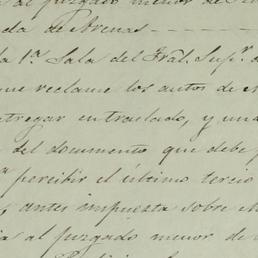 al juzgado menor de
da de Arenas
la 1.ª Sala del Tral. Supr. d
que reclame los autos de
ntregar en traslado, y una
del documento que debe
percibir el último tercio
, antes impuesta sobre
ia al juzgado menor de